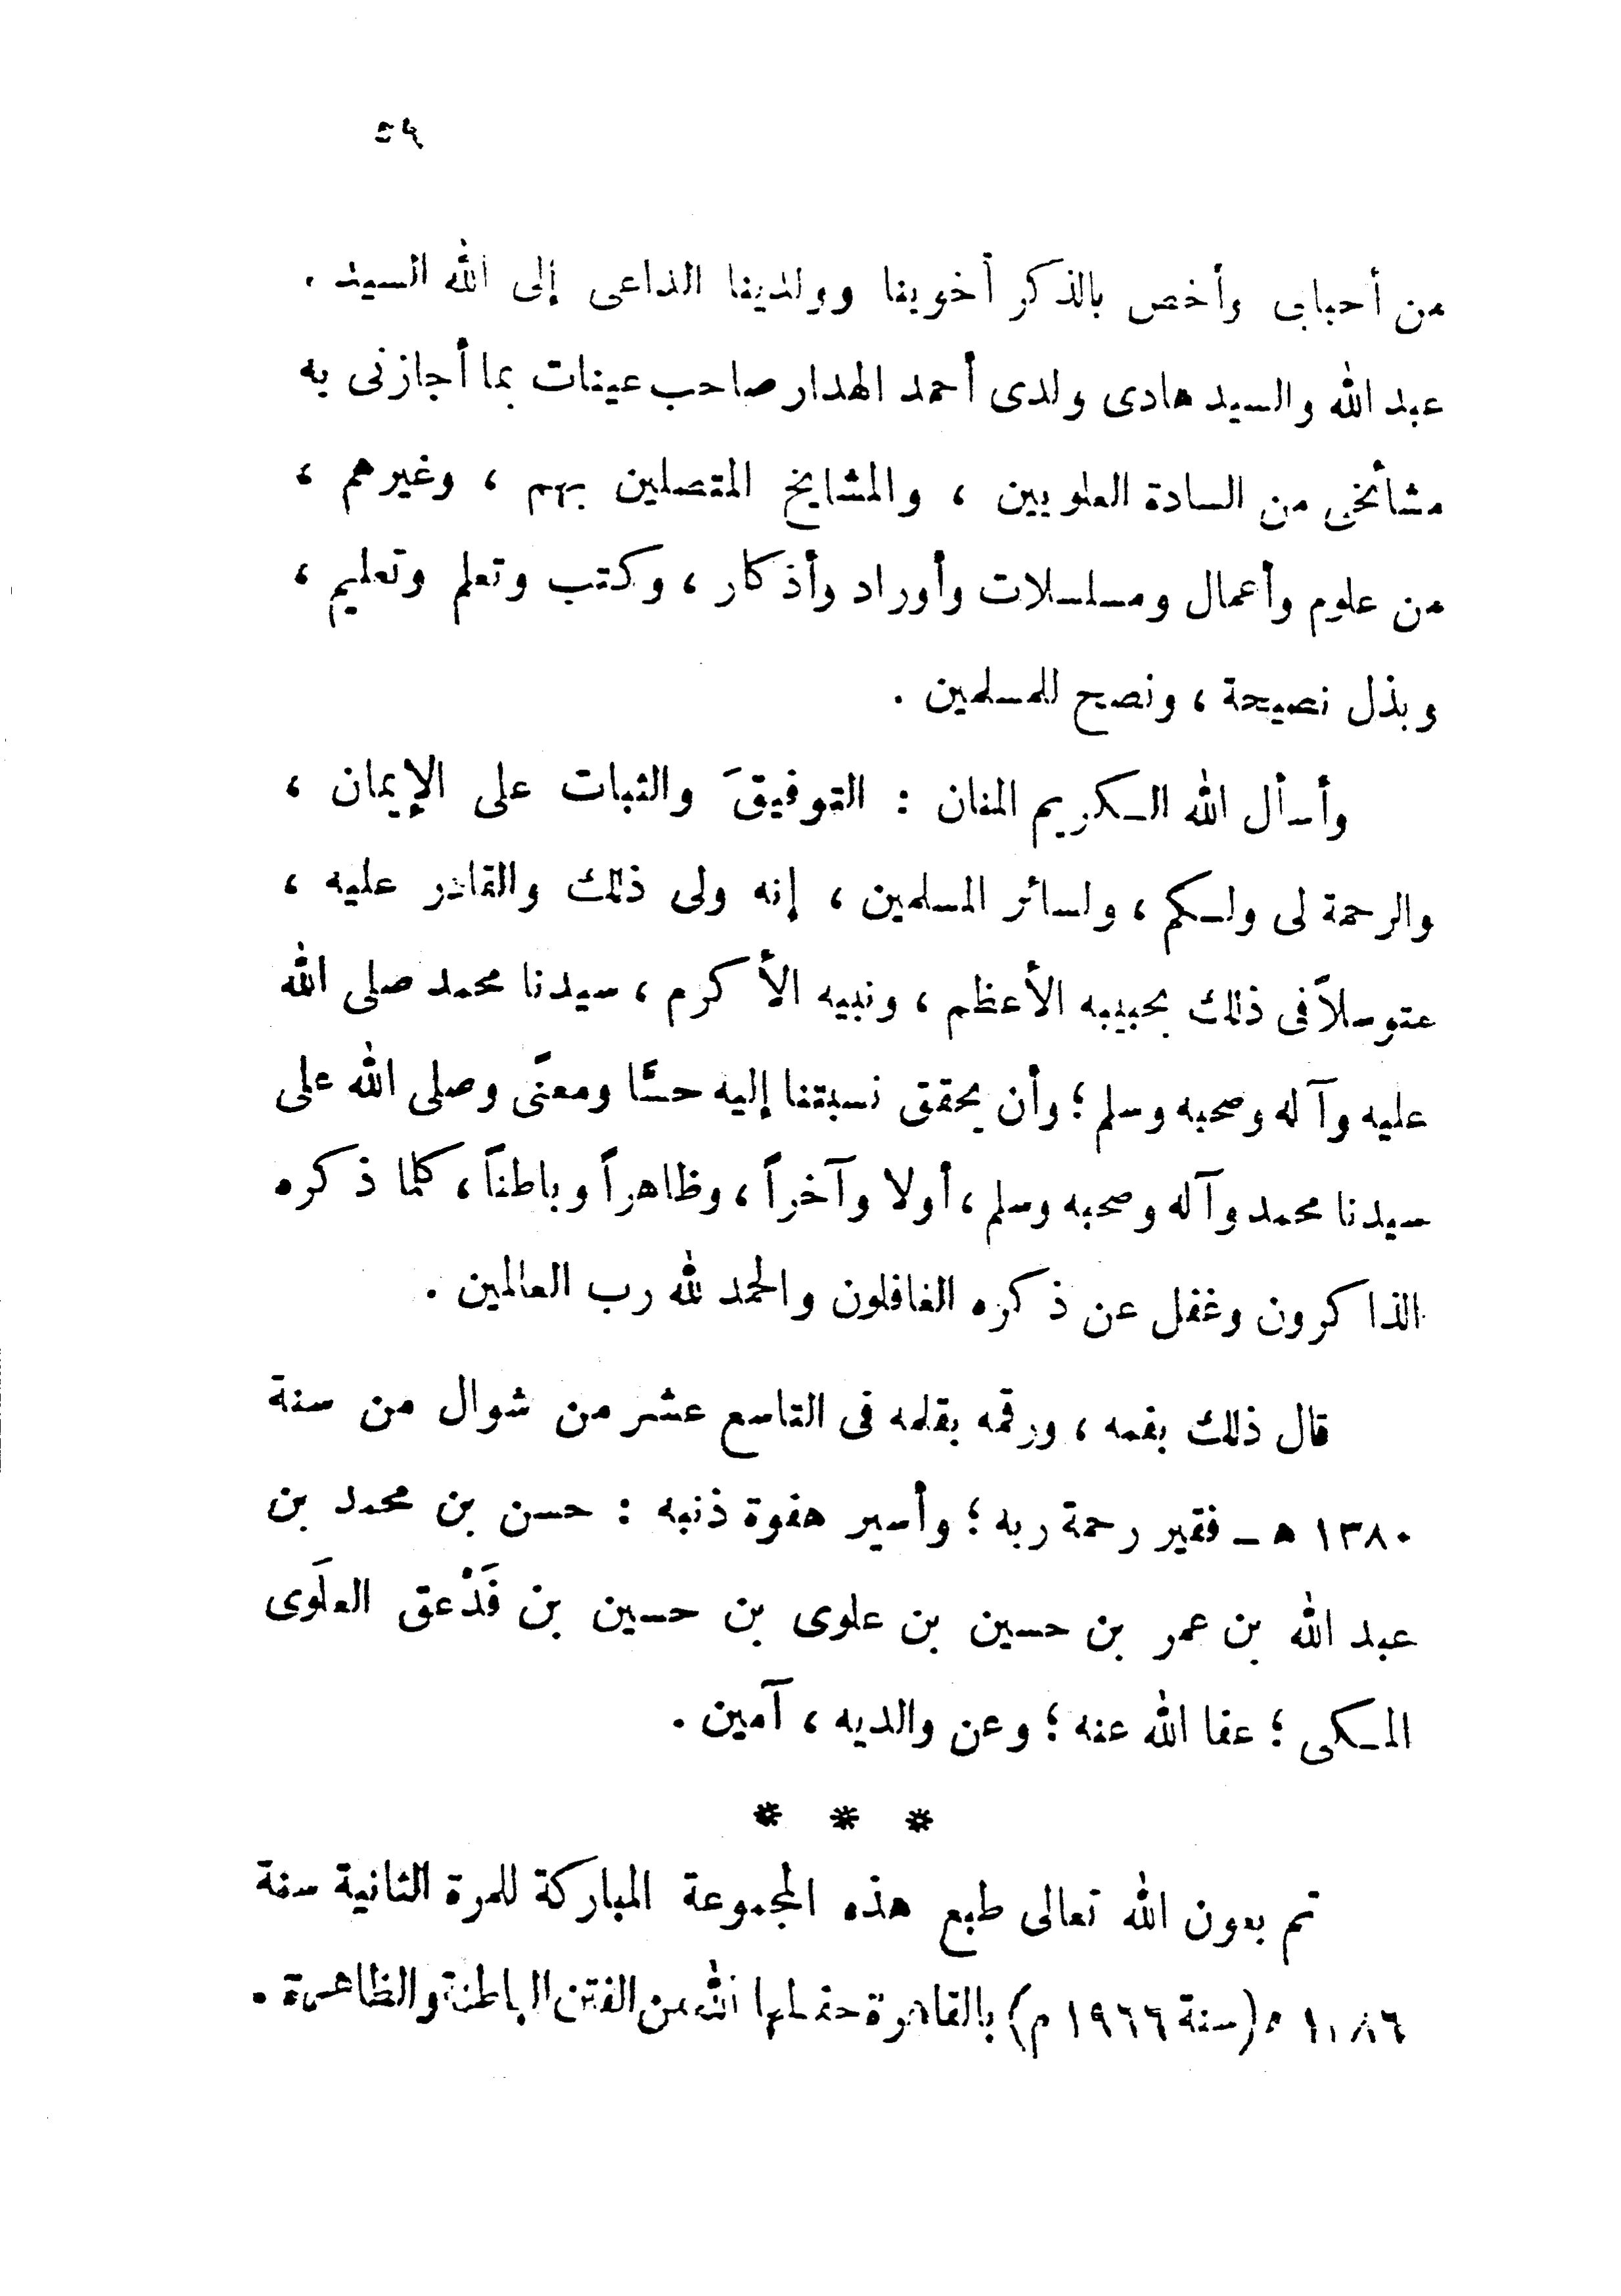 من أحبابى وأخص بالذكر أخوينا وولدينا الداعى إلى الله السيد .
عبد الله والسيد هادى ولدى أحمد الهدار صاحب عينات بما أجازنى به
مشائخى من السادة العلويين ، والمشايخ المتصلين بهم ، وغيرهم ،
من علوم وأعمال ومسلسلات وأوراد وأذكار ، وكتب وتعلم وتعليم ،
وبذل نصيحة ، ونصح للمسلمين .
وأسأل الله الكريم المنان : التوفيقَ والثبات على الإيمان ،
والرحمة لى ولكم ، ولسائر المسلمين ، إنه ولى ذلك والقادر عليه ،
متوسلاً فى ذلك بحبيبه الأعظم ، ونبيه الأكرم ، سيدنا محمد صلى الله
عليه وآله وصحبه وسلم ؛ وأن يحقق نسبتنا إليه حسًّا ومعنًى وصلى الله على
سيدنا محمد وآله وصحبه وسلم ، أولا وآخراً ، وظاهراً وباطناً ، كلما ذكره
الذاكرون وغفل عن ذكره الغافلون والحمد لله رب العالمين .
قال ذلك بفمه ، ورقمه بقلمه فى التاسع عشر من شوال من سنة
١٣٨٠ ه ـ فقير رحمة ربه ؛ وأسير هفوة ذنبه : حسن بن محمد بن
عبد الله بن عمر بن حسين بن علوى بن حسين بن فَدْعق العلَوى
المكى ؛ عفا الله عنه ؛ وعن والديه ، آمين .
* * *
تم بعون الله تعالى طبع هذه المجموعة المباركة للمرة الثانية سنة
(سنة ١٩٦٦ م) بالقاهرة حفظها الله من الفتن الباطنة والظاهرة .